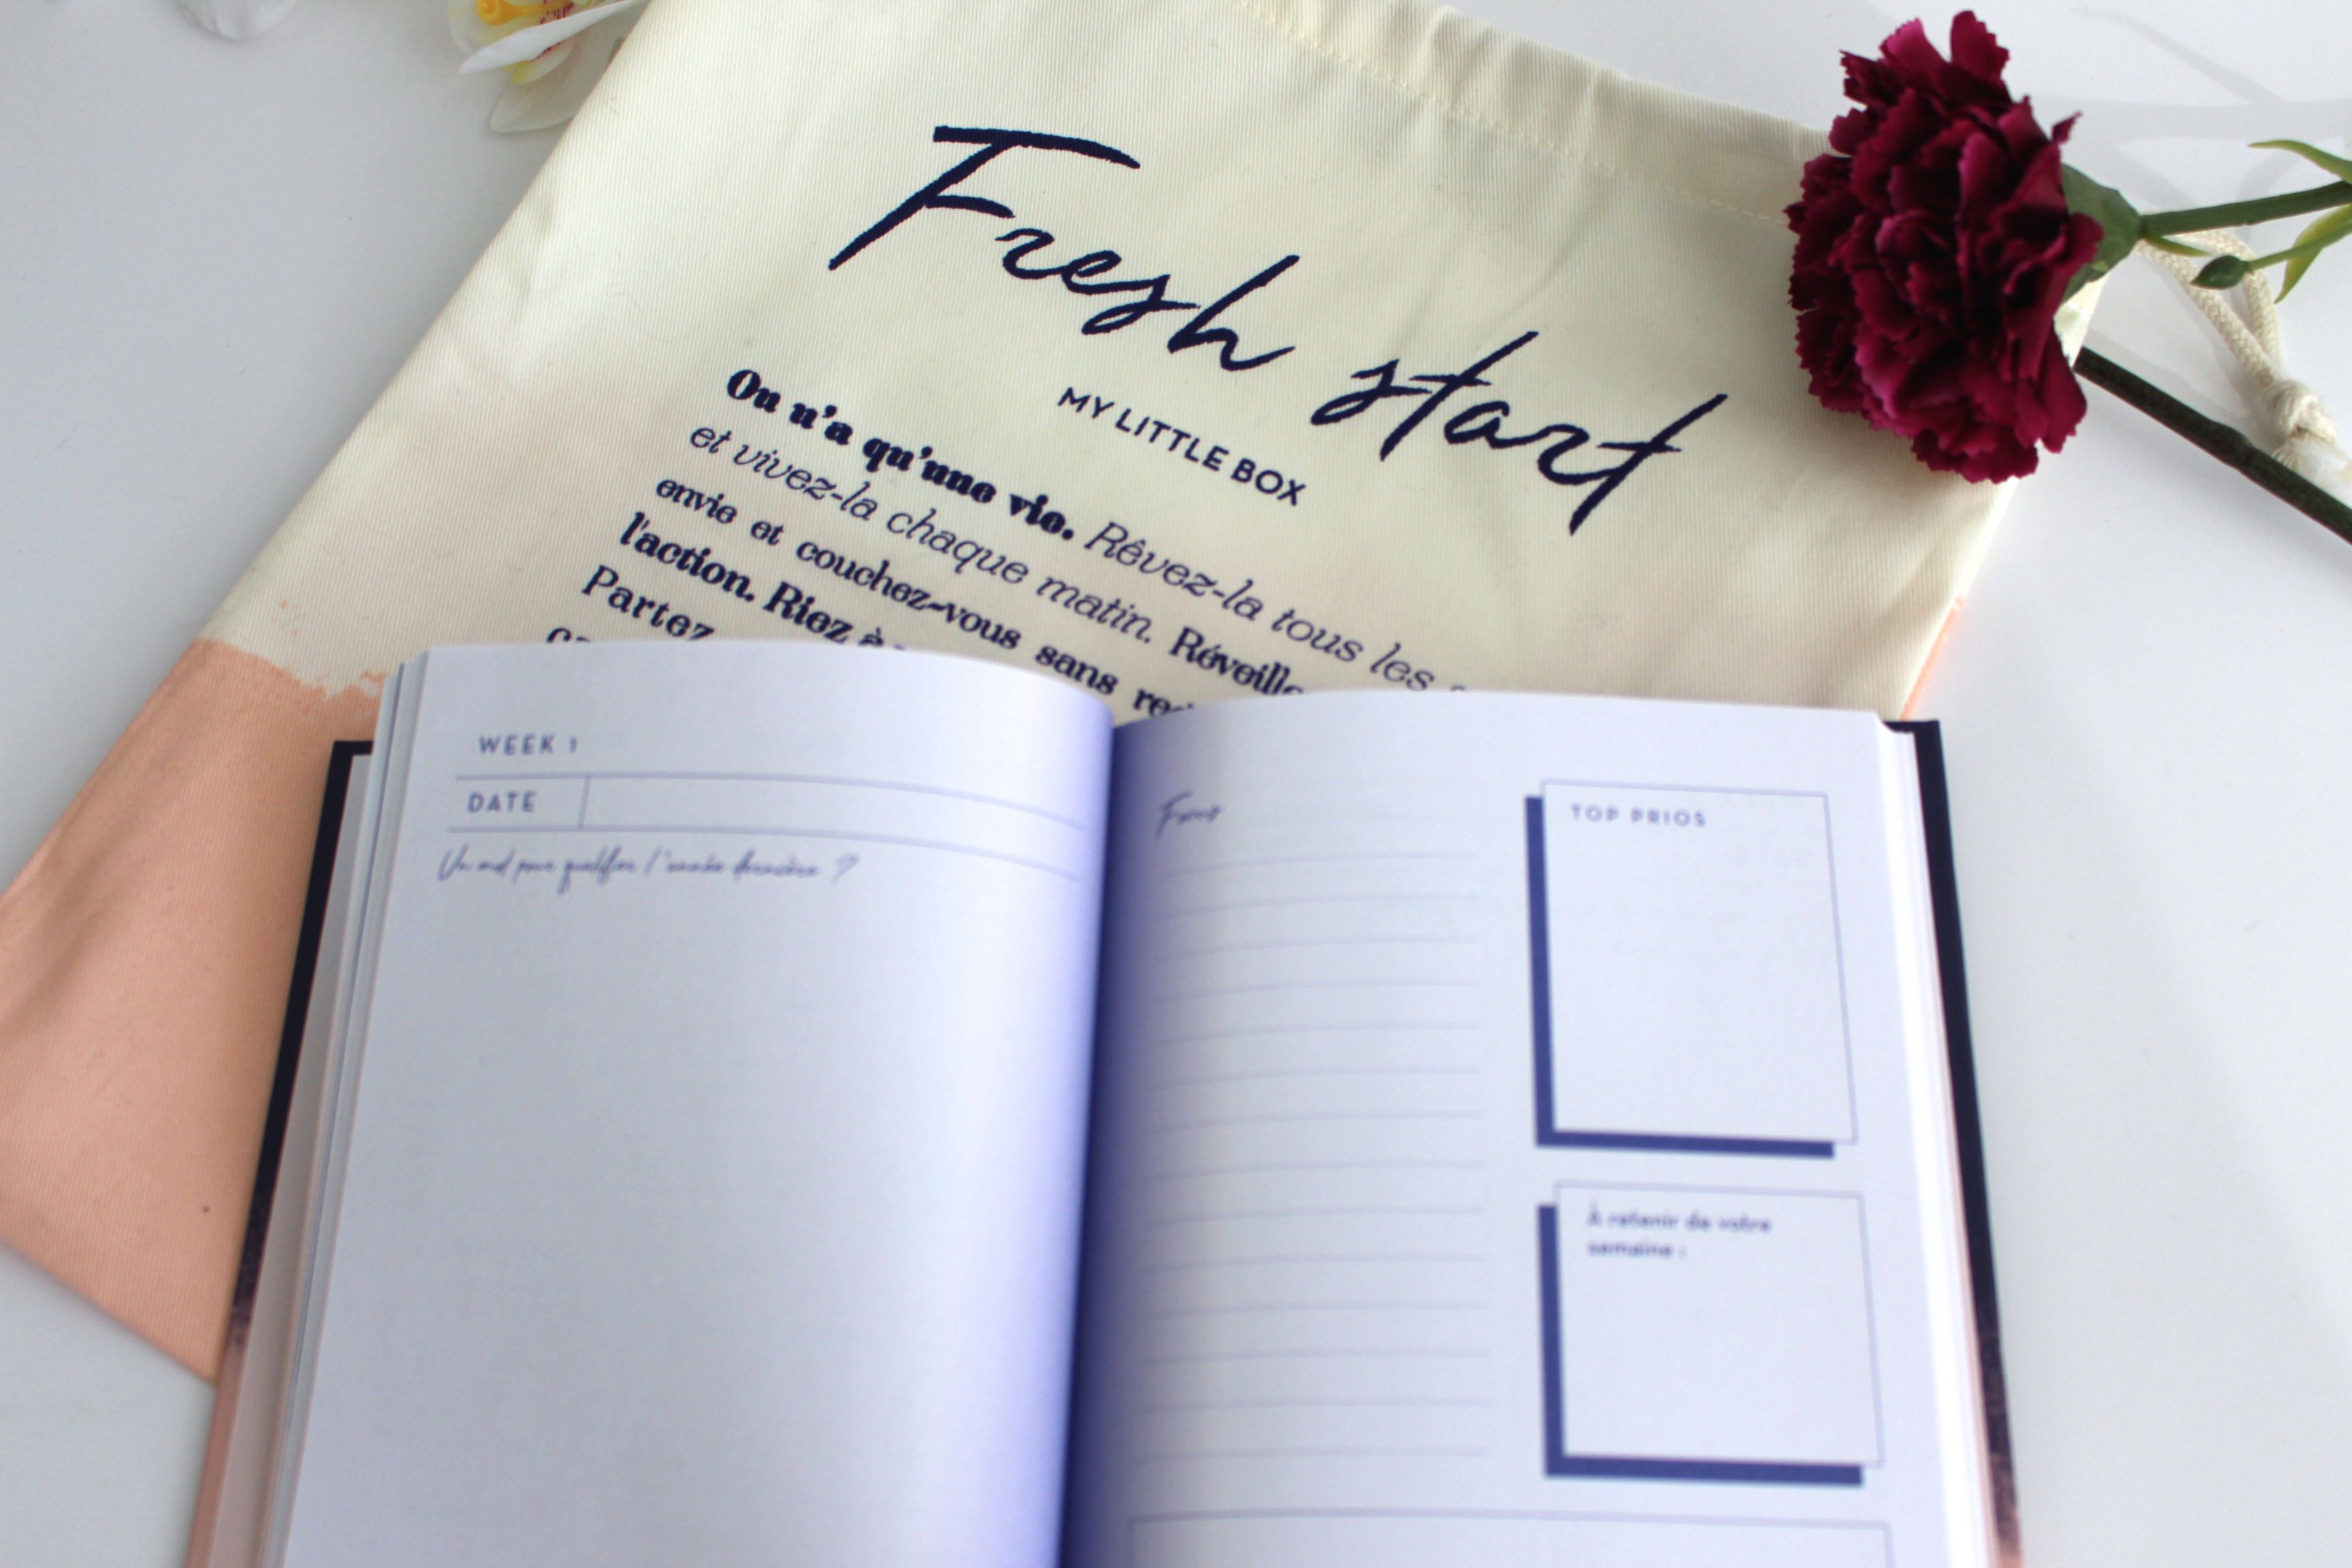 Fresh start
MY LITTLE BOX
On n'a qu'une vie. Rêvez-la tous les
et vivez-la chaque matin.
envie et couchez-vous sans
l'action. Riez à
Partez
WEEK 1
DATE
Un mot pour qualifier l'année dernière ?
Focus
TOP PRIOS
À retenir de votre
semaine :